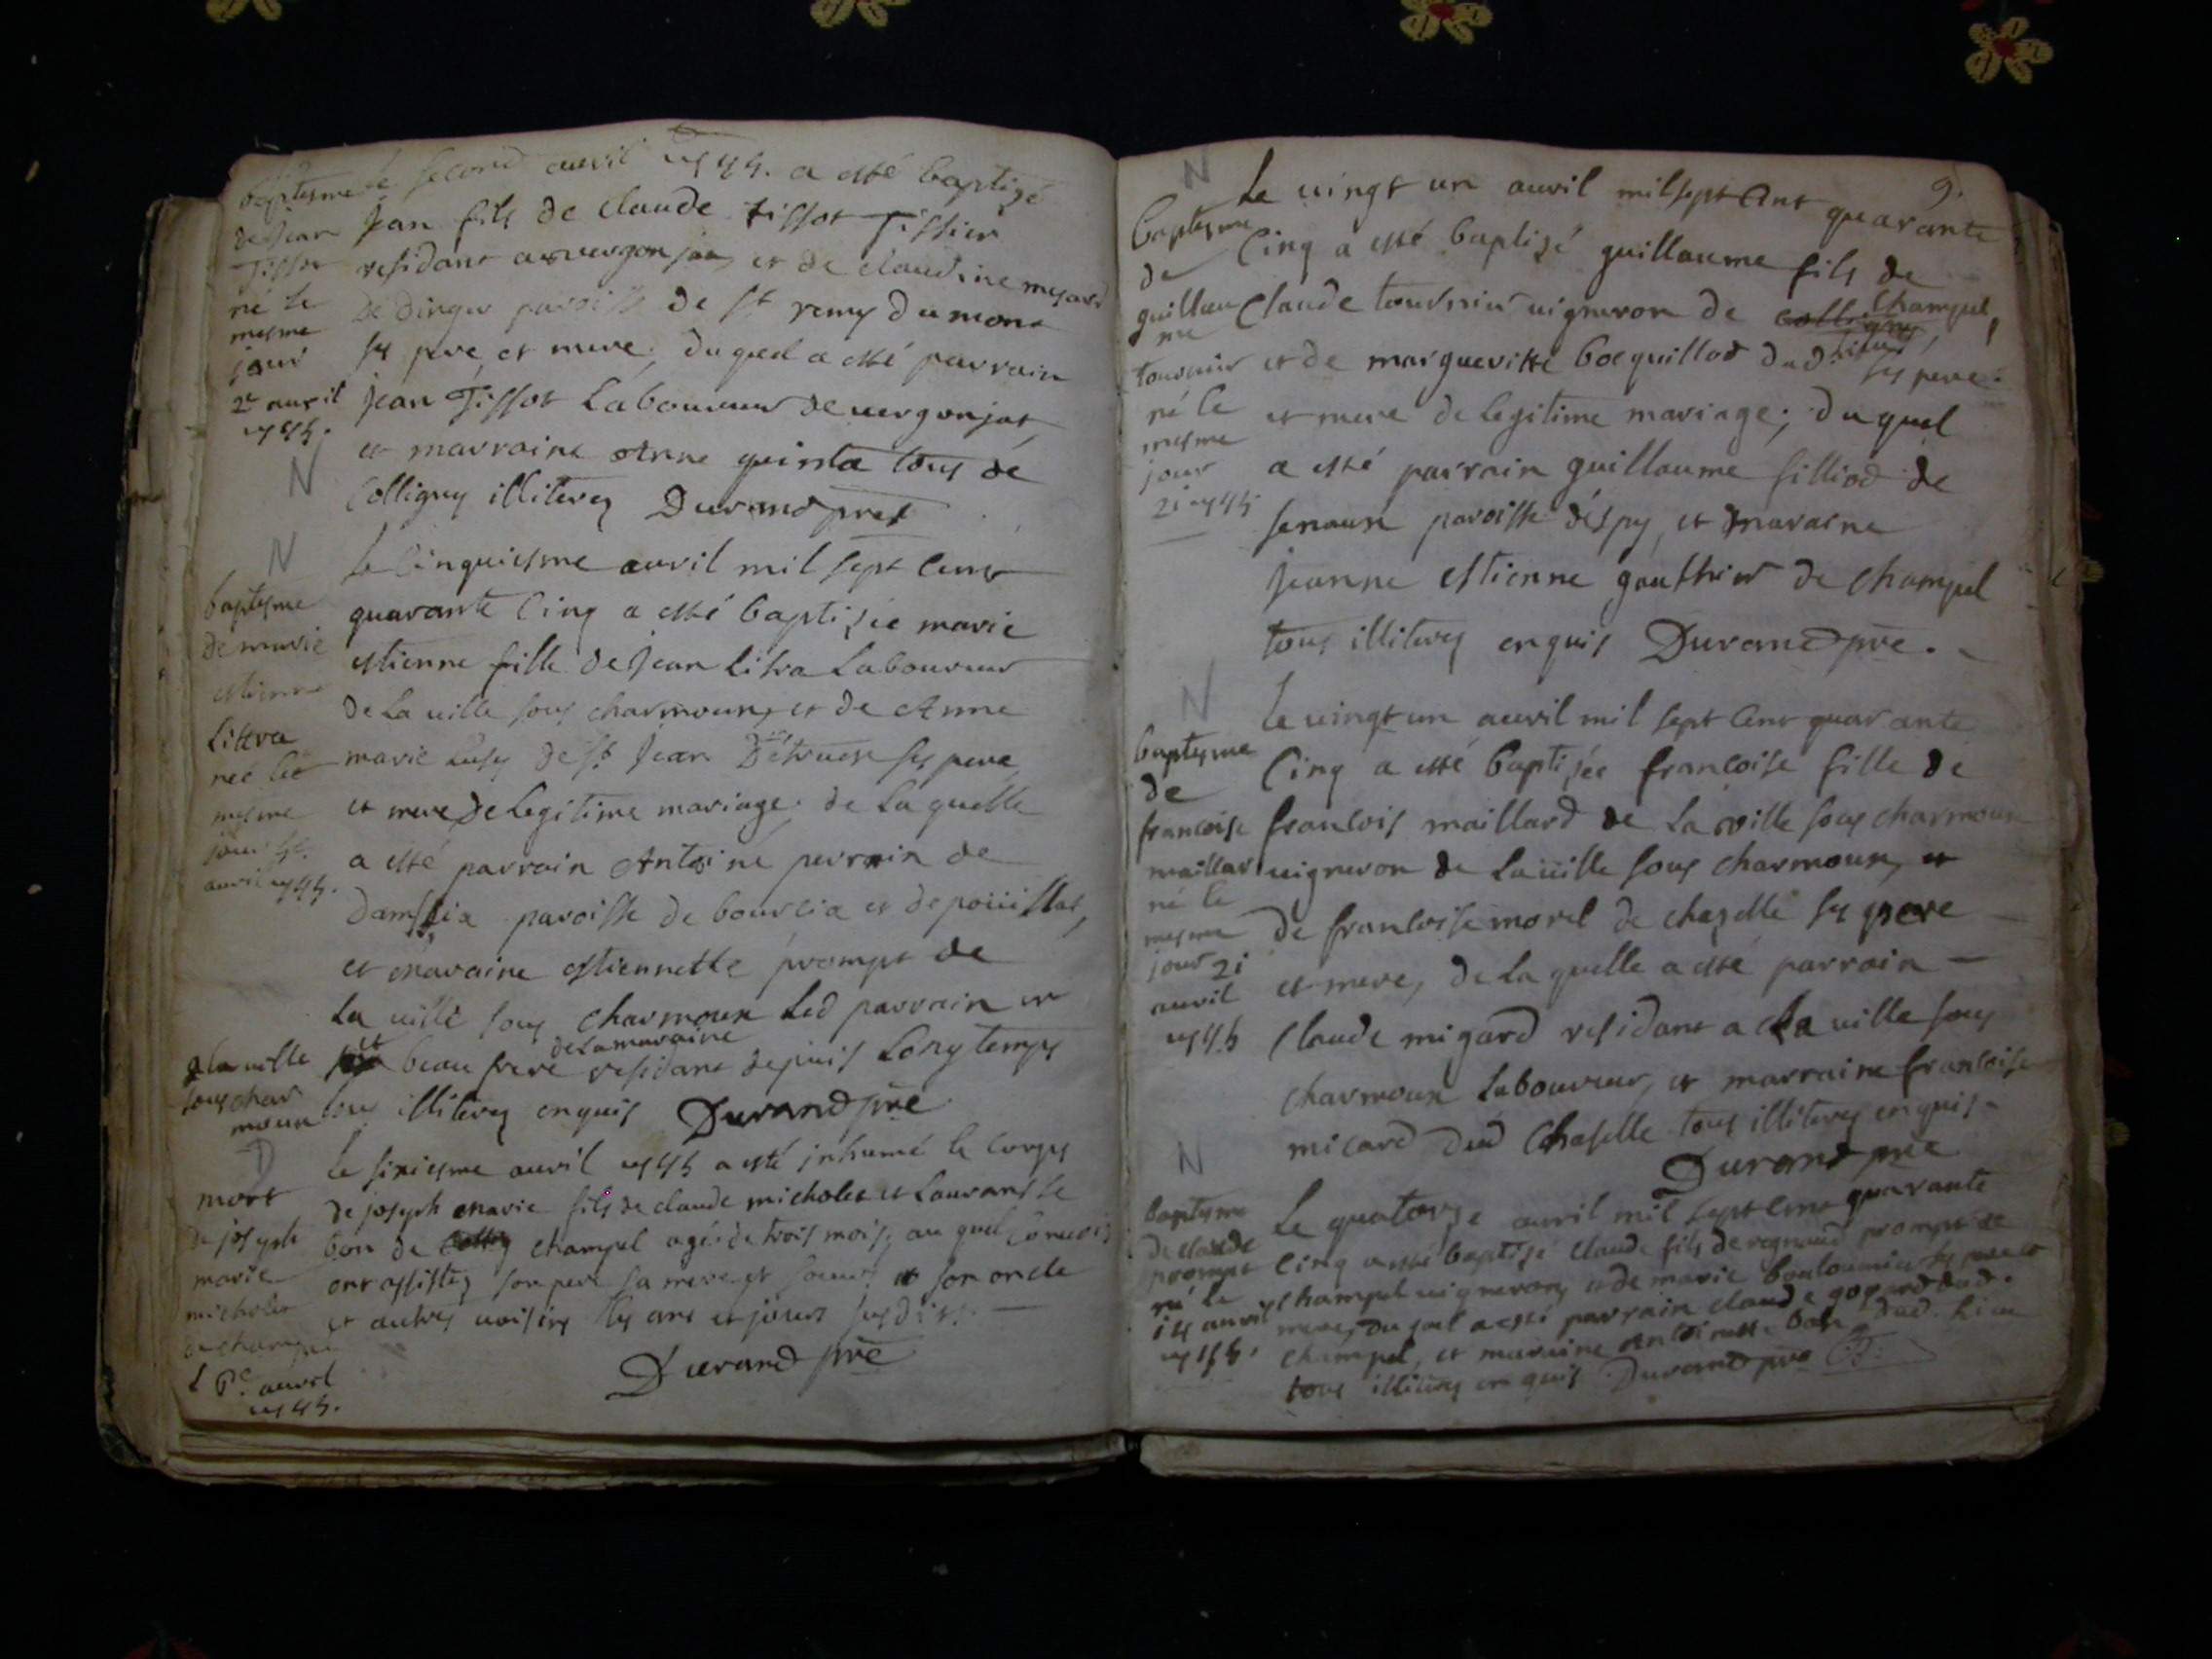 baptesme
de jean
Tissot
né le
mesme
jour
2e auril
1745.
N
le second auril 1745. a esté baptizé
jean fils de claude tissot Tissier
residant a vergonjat et de claudine
de dingier paroisse de st remy du mont
ses pere et mere, duquel a esté parrain
jean Tissot Laboureur de vergonjat
et marraine Anne quinta tous de
Colligny illiterez Durand pret
N
baptesme
de marie
estienne
Littra
neé le
mesme
jour 5e.
auril 1745.
Le Cinquiesme auril mil sept cent
quarante Cinq a esté baptisée marie
estienne fille de jean Litra Laboureur
de La uille sous charmoux, et de Anne
marie de st jean ses pere
et mere de Legitime mariage, de Laquelle
a esté parrain Antoine perrain de
paroisse de bourcia et de
et maraine estiennette prompt de
La uille sous charmoux Led parrain
beau frere de La maraine residant depuis Long temps
a la uille
sous char
moux
tous illiterez enquis Durand pre
D
mort
de joseph
marie
micholet
de champ
6e. auril
1745.
Le sixiesme auril 1745 a esté inhumé le Corps
de joseph marie fils de claude micholet et Laurance
bon de champel agé de trois mois, au quel conuois
ont assistez son pere sa mere et soeur et son oncle
et autres uoisins Les ans et jours susdits.
Durand pre
9.
N
baptesme
de
guillau
me
tournier
né le
mesme
jour
21 1745
Le uingt un auril mil sept Cent quarante
Cinq a esté baptizé guillaume fils de
Claude tournier uigneron de colligny champel,
et de margueritte bocquillod dud. lieu, ses pere
et mere de legitime mariage; du quel
a esté parrain guillaume filliod de
senaux paroisse déspy, et maraine
jeanne estienne gauthier de champel
tous illiterez enquis Durand pre.
N
baptesme
de
francoise
maillar
né le
mesme
jour 21
auril
1745
Le uingt un auril mil sept Cent quarante
Cinq a esté baptisée francoise fille de
francois maillard de La uille sous charmoux
uigneron de La uille sous charmoux, et
de francoise morel de chazelle ses pere
et mere, de La quelle a esté parrain
Claude migard residant a La uille sous
charmoux Laboureur, et marraine francoise
micard dud Chaselle tous illiterez enquis
Durand pre
N
baptesme
de claude
prompt
né le
14 auril
1745.
Le quatorze auril mil sept Cent quarante
Cinq a esté baptisé Claude fils de regnaud prompt de
champel uigneron, et de marie ses pere et
mere, du quel a esté parrain claude dud.
champel, et maraine Antoinette bon dud. Lieu
tous illiterez enquis Durand pre